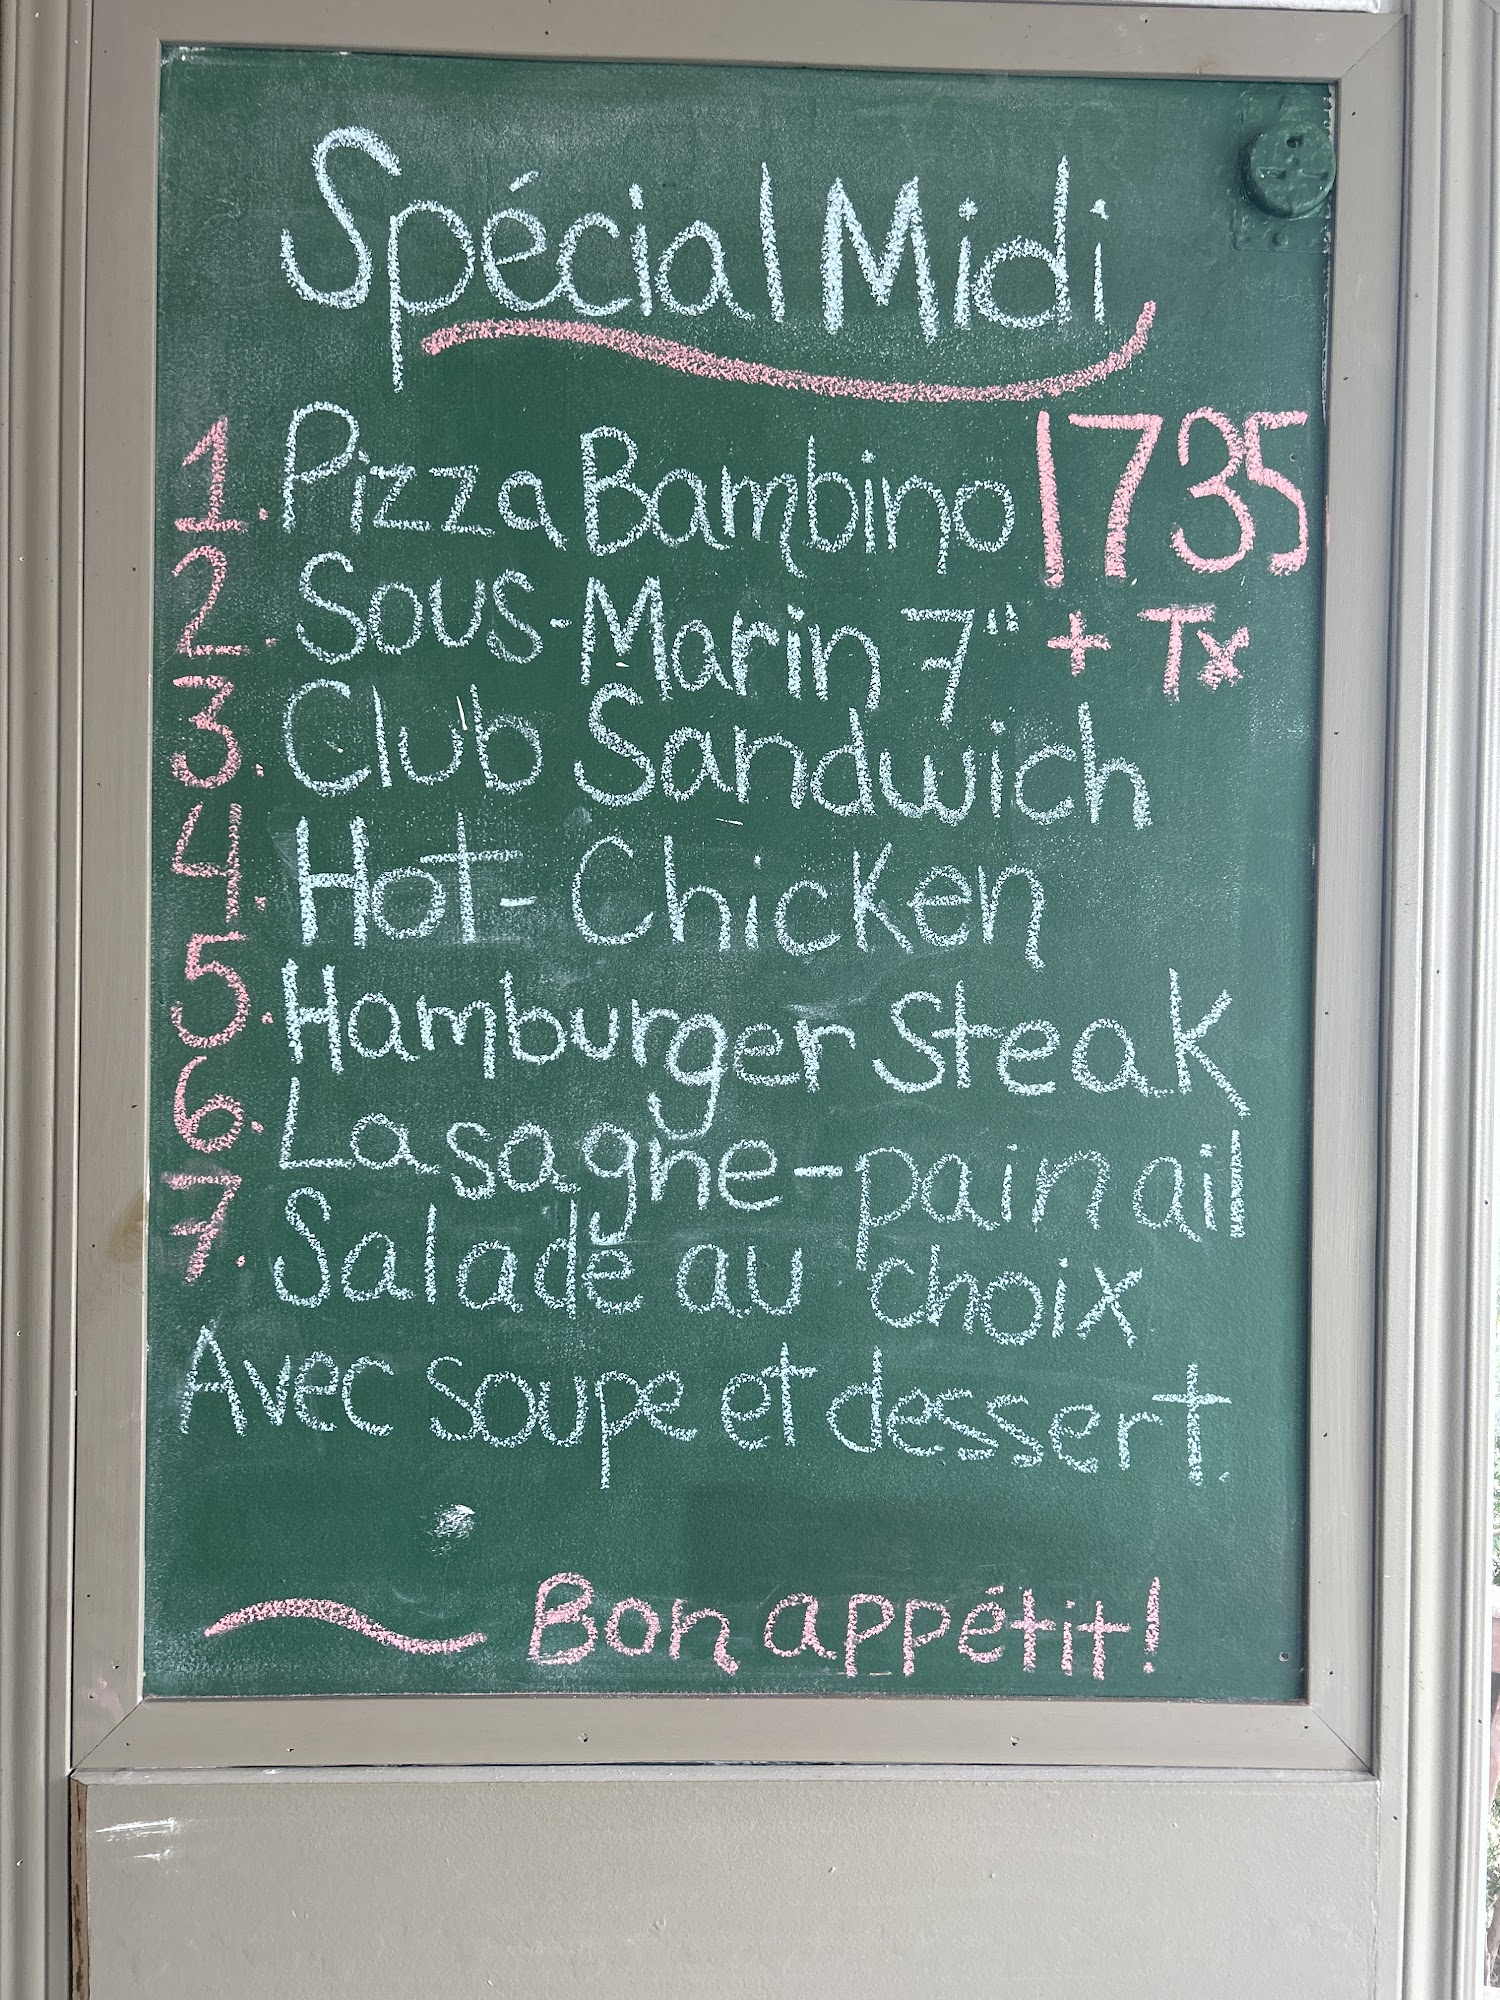 Spécial Midi
1. Pizza Bambino 1735
2. Sous-Marin 7" + Tx
3. Club Sandwich
4. Hot-Chicken
5. Hamburger Steak
6. Lasagne-pain ail
7. Salade au choix
Avec soupe et dessert.
Bon appétit!